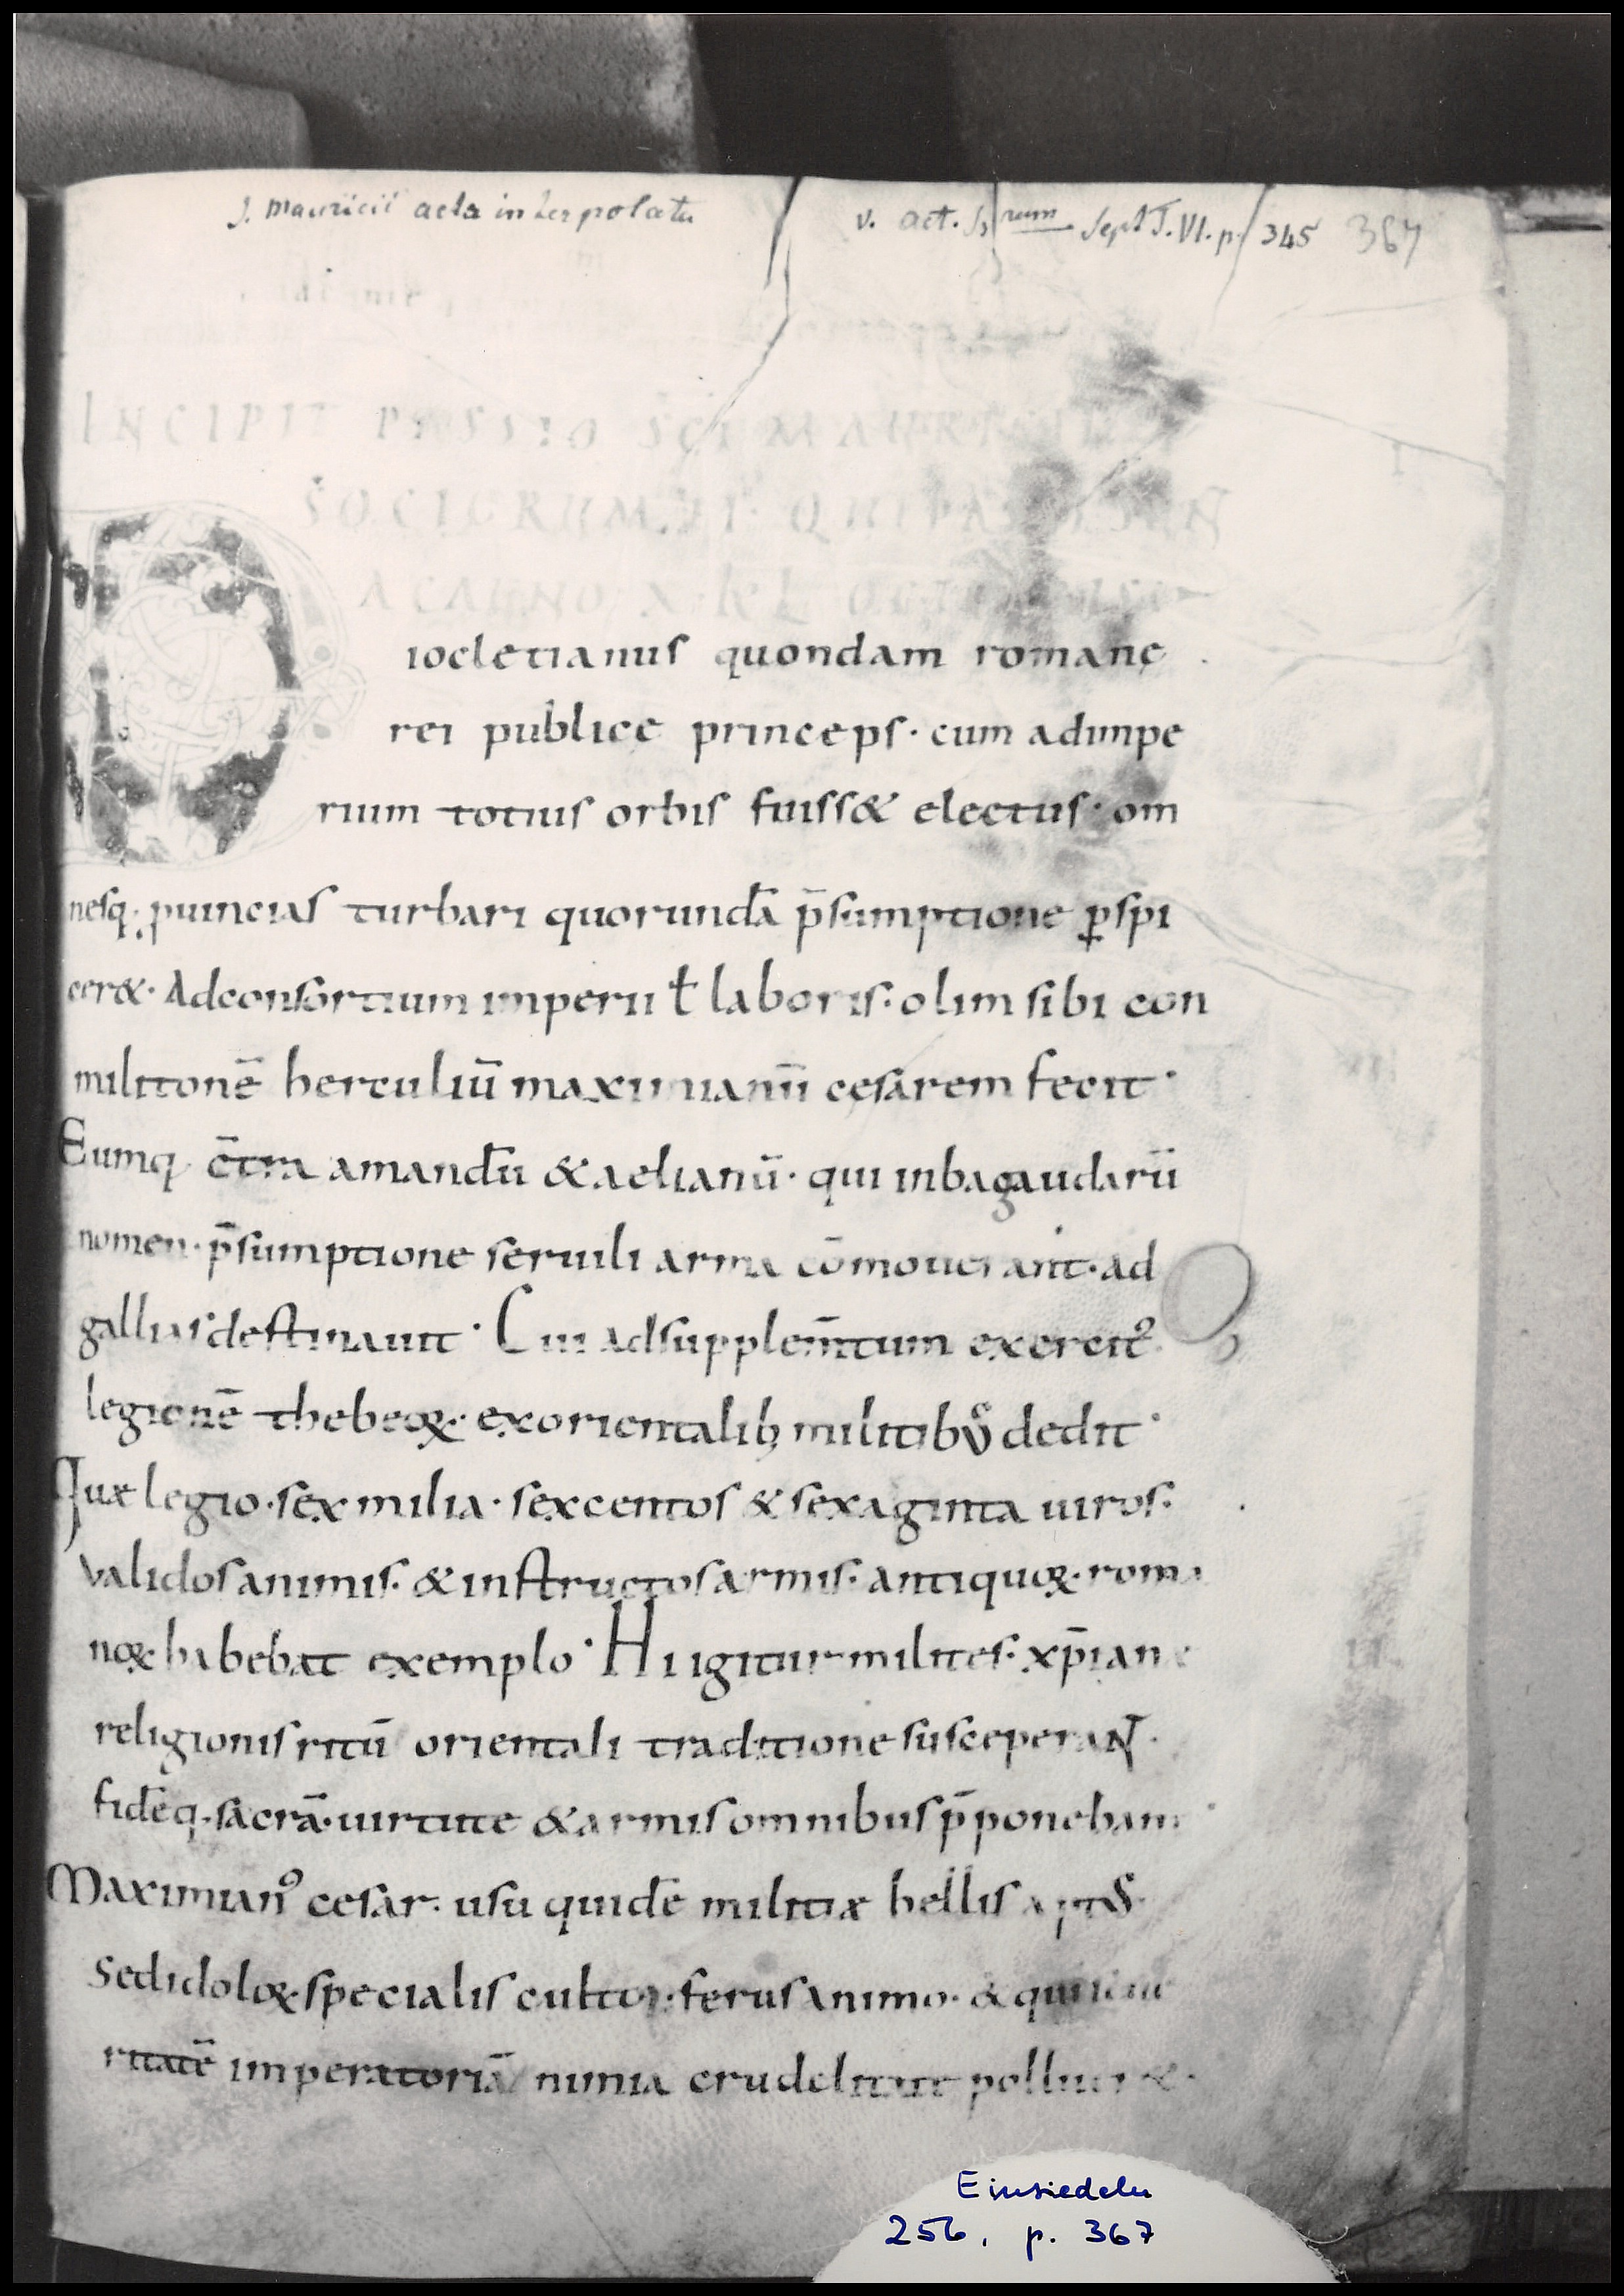 S. Mauricii acta interpolata
v. act. SSrum Sept T. VI. p. 345 367
INCIPIT PASSIO SCI MAURICII
SOCIORUM EI QUI PASSI SUN
ACAUNO X KL OCT
Diocletianus quondam romanę
rei publicę princeps · cum adimpe
rium totius orbis fuiss& electus · om
nesq; puincias turbari quorundā p̄sumptione ꝑspi
cer&· Adconsortium imperii ɫ laboris: olim sibi con
militonē herculiū maximianū cesarem fecit ·
Eumq; c̄tra amandū & aelianū · qui inbagaudarū
nomen · p̄sumptione seruili arma cōmouerant · ad
gallias destinauit · Cui adsupplem̄tum exercitꝰ
legionē thebeoꝝ · exorientalib; militibus dedit ·
Quæ legio · sex milia · sexcentos & sexaginta uiros ·
validos animis · & instructos armis · antiquoꝝ · roma
noꝝ habebat exemplo · Hi igitur milites · xp̄ianę
religionis ritū orientali traditione susceperaNT ·
fidēq; sacrā · uirtute & armis omnibus p̄ponebant ·
Maximianꝰ cesar · usu quidē militiæ bellis aptus ·
Sed idoloꝝ · specialis cultor · ferus animo · & qui
ritatē imperatoriā nimia crudelitate polluer& ·
Einsiedeln
256, p. 367